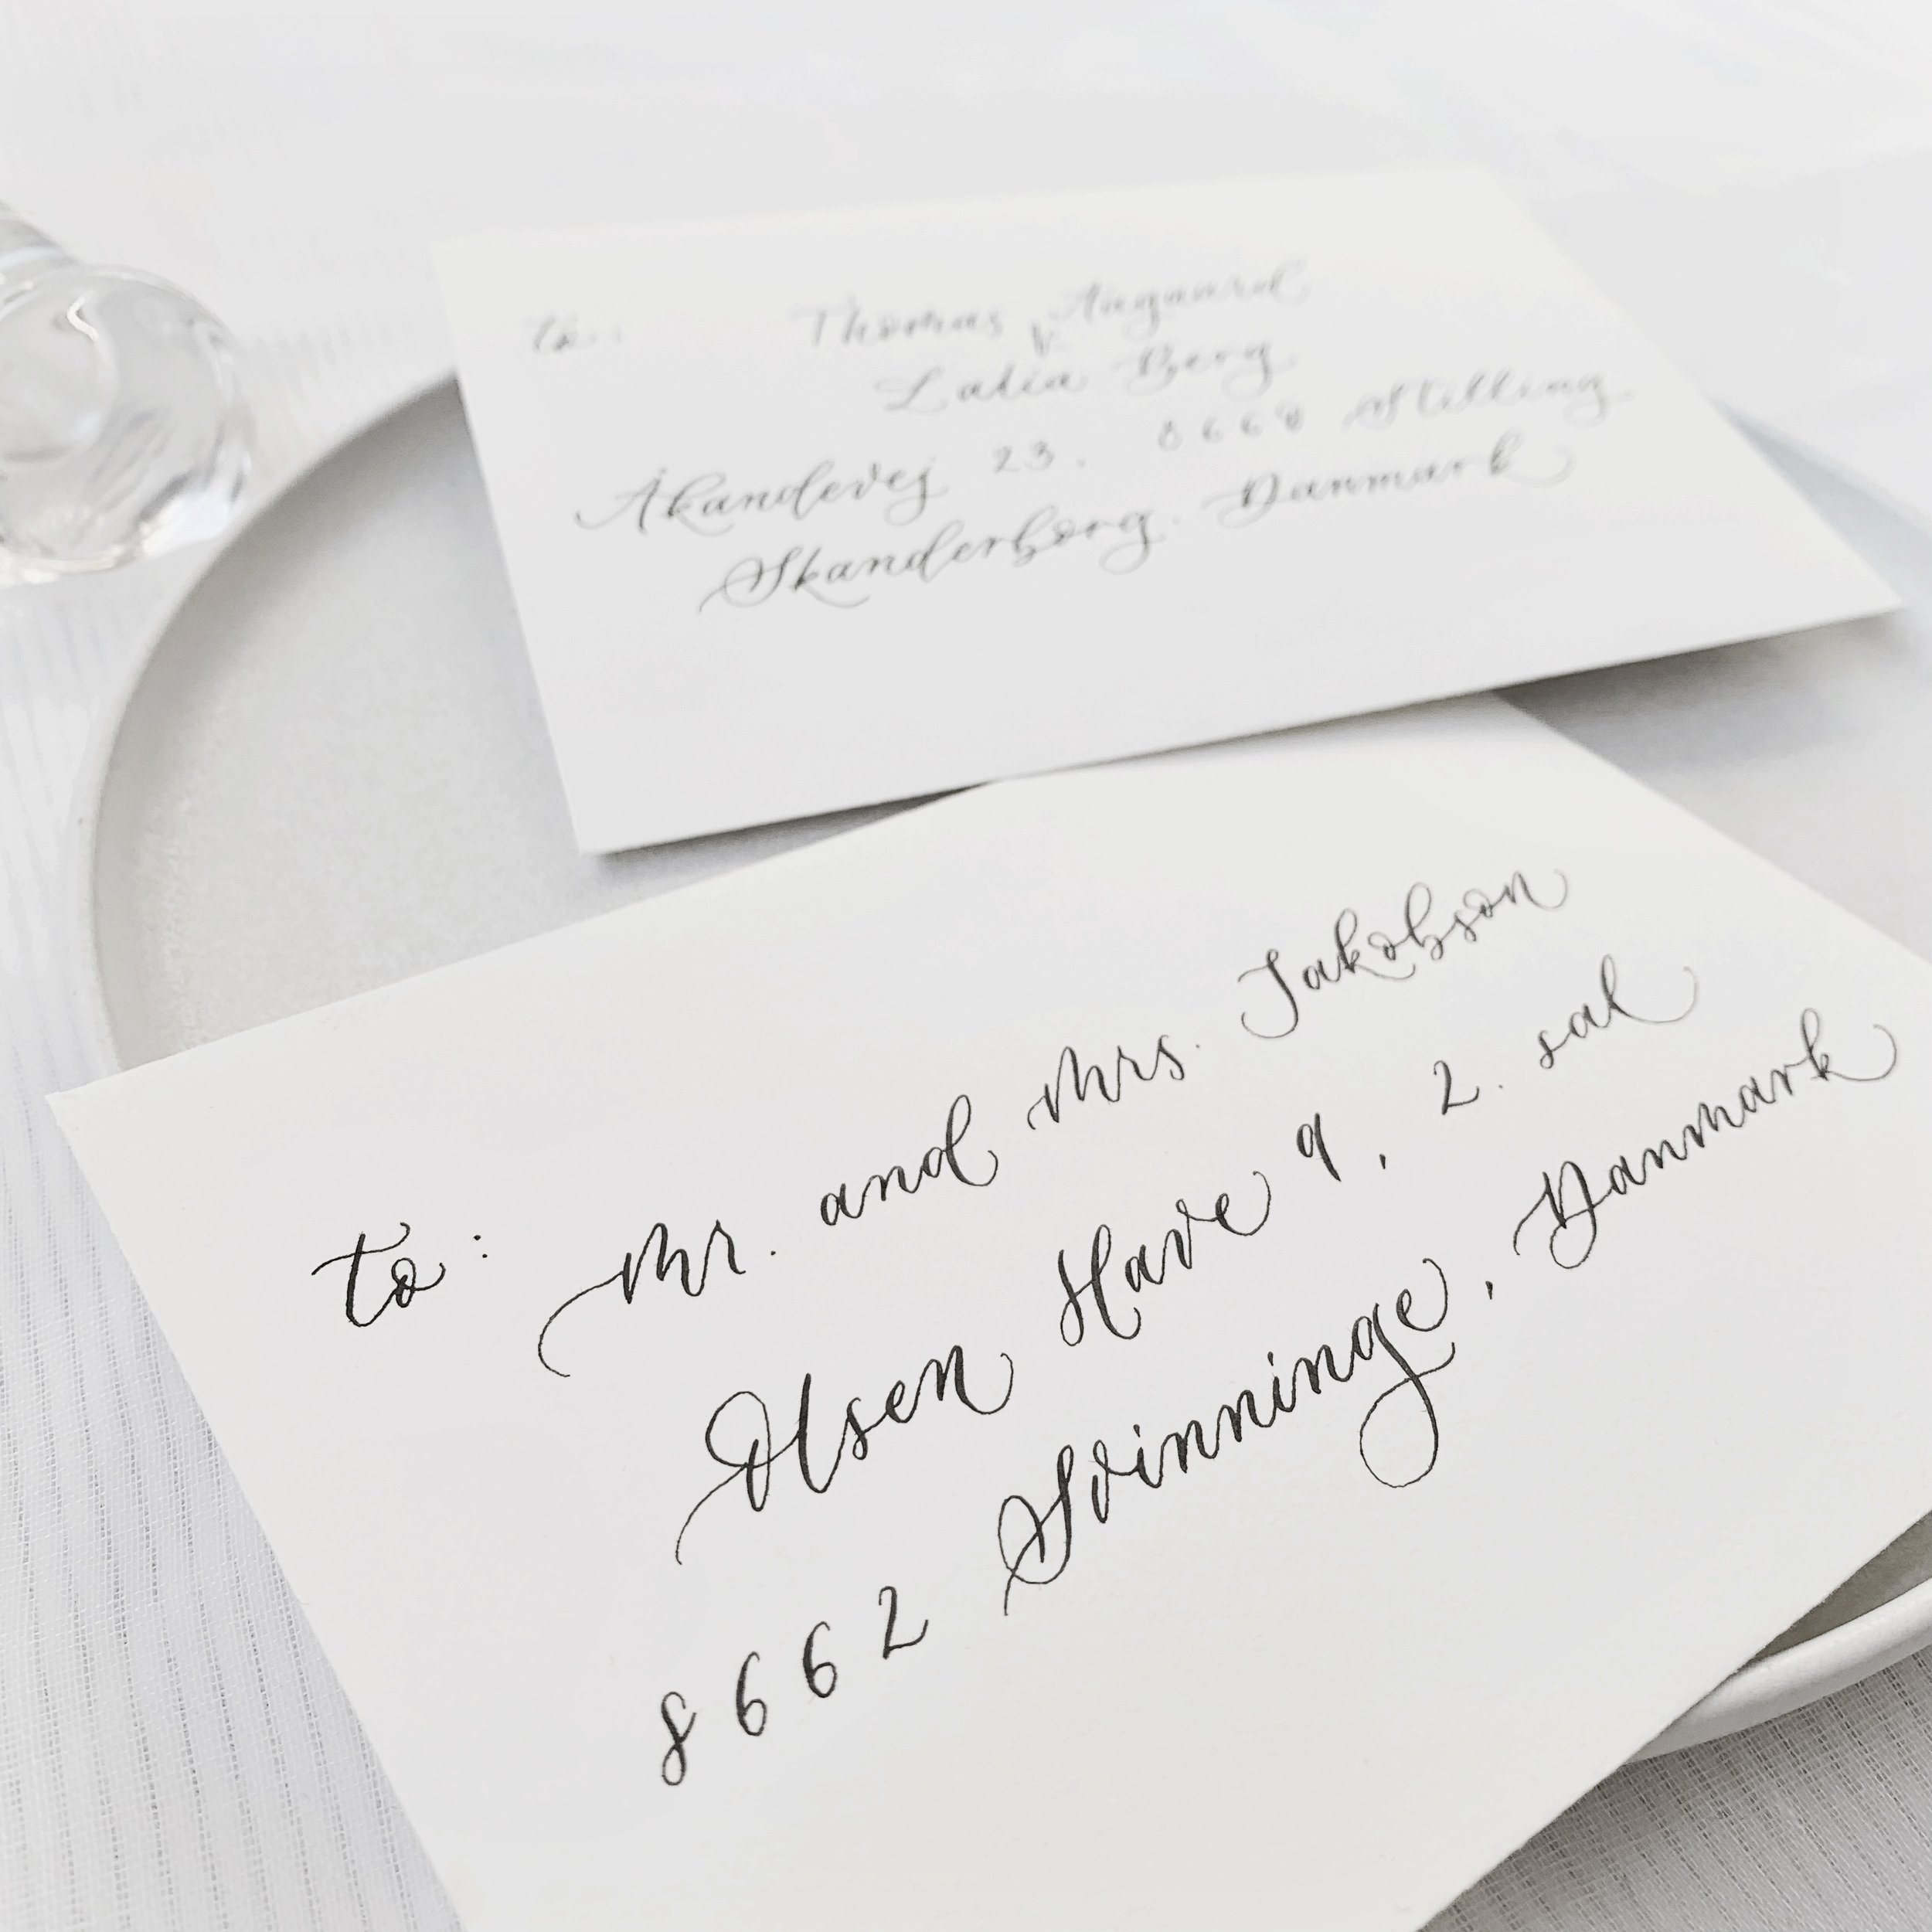 to: Thomas
Latia Berg
Åkandevej 23, 8660 Stilling
Skanderborg, Danmark
to: Mr. and Mrs. Jakobson
Olsen Have 9, 2. sal
8662 Svinninge, Danmark